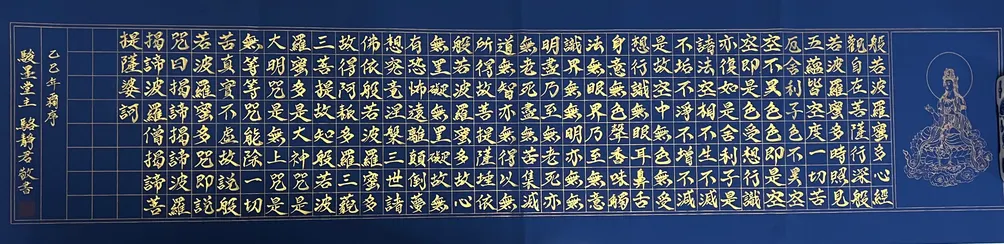 般若波羅蜜多心經
觀自在菩薩行深般
若波羅蜜多時照見
五蘊皆空度一切苦
厄舍利子色不異空
空不異色色即是空
空即是色受想行識
亦復如是舍利子是
諸法空相不生不滅
不垢不淨不增不減
是故空中無色無受
想行識無眼耳鼻舌
身意無色聲香味觸
法無眼界乃至無意
識界無無明亦無無
明盡乃至無老死亦
無老死盡無苦集滅
道無智亦無得以無
所得故菩提薩埵依
般若波羅蜜多故心
無罣礙無罣礙故無
有恐怖遠離顛倒夢
想究竟涅槃三世諸
佛依般若波羅蜜多
故得阿耨多羅三藐
三菩提故知般若波
羅蜜多是大神咒是
大明咒是無上咒是
無等等咒能除一切
苦真實不虛故說般
若波羅蜜多咒即說
咒曰揭諦揭諦波羅
揭諦波羅僧揭諦菩
提薩婆訶
乙巳年
駿星堂主 駱靜君敬書